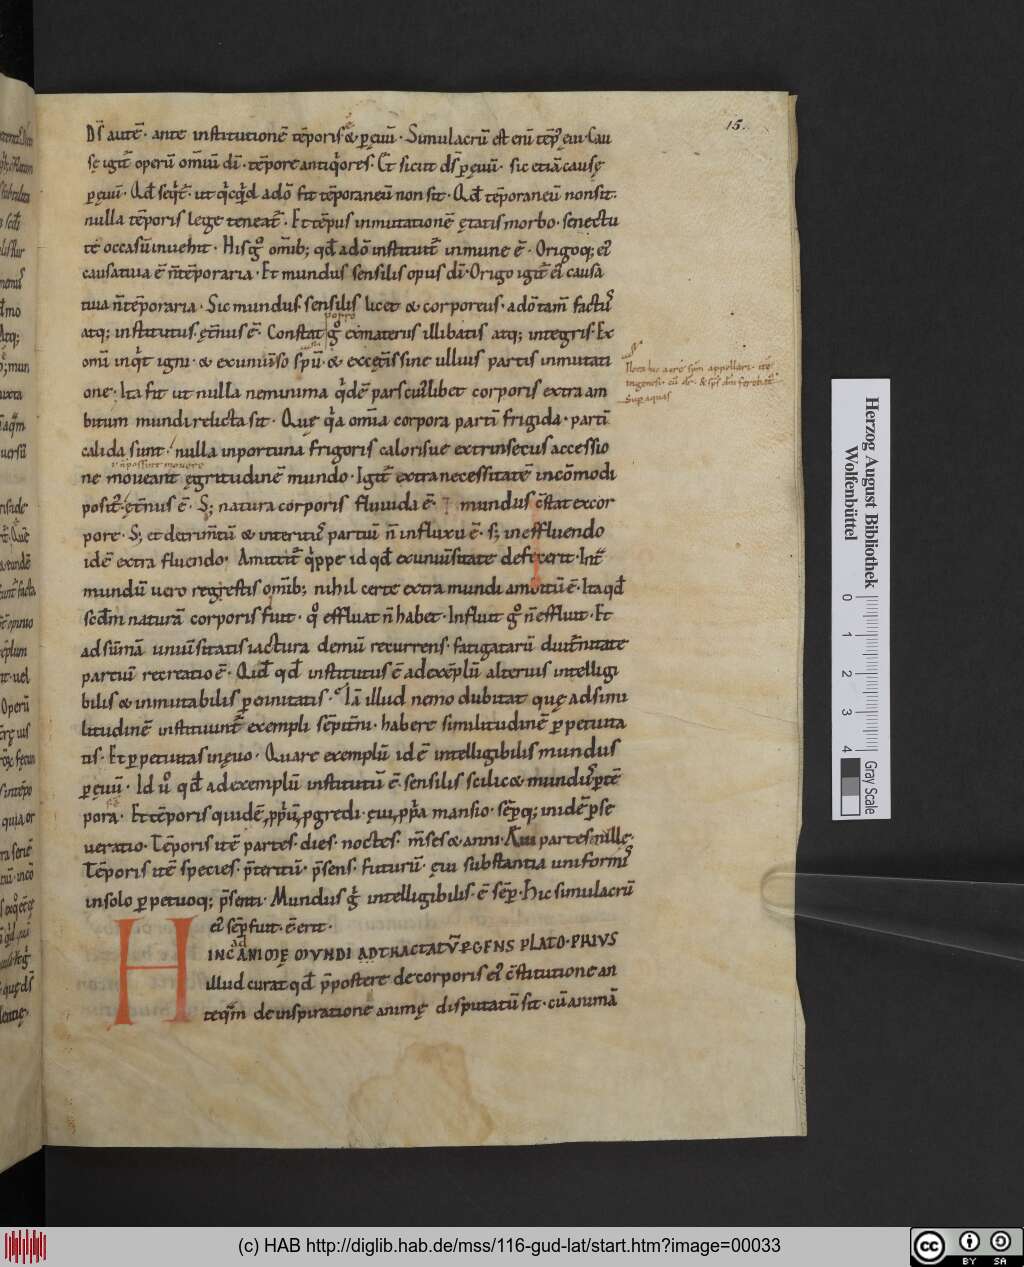 15.
Dſ autē · ante inſtitutionē tēporiſ & p̱ ęuū · Simulacrū eſt enī tēp; ęui · Cau
ſę igit̄ operū omīuī dī · tēpore antiq̇oreſ · Et ſicut dſ p̱ ęuū · ſic etiā cauſę
p̱ ęuū · Qd̄ ſeq̇t̄ · ut q̇cq̇d a dō fit tēporaneū non ſit · Qd̄ tēporaneū non ſit ·
nulla tēporiſ lege teneat̄ · Et tēpuſ inmutationē ętatiſ morbo · ſenectu
tē occaſū inuehit · Hiſ gͦ om̄ib; qd̄ a dō inſtituit̄ inmune ē · Origo q; eiꝰ
cauſatiua ē n̄ tēporaria · Et munduſ ſenſiliſ opuſ dī · Origo igit̄ eiꝰ cauſa
tiua n̄ tēporaria · Sic munduſ ſenſiliſ licet & corporeuſ · a dō tam̄ factuſ
porro
atq; inſtitutuſ · ęt̄nuſ ē · Conſtat gͦ c̄ materiiſ illibatiſ atq; integriſ · Ex
omī inq̇t igni · & ex uniūſo ſpū · & exceptiſ ſine ulliuſ partiſ inmutati
one · Ita fit ut nulla nec minima q̇dē parſ cuiꝰlibet corporiſ extra am
bitum mundi relicta ſit · Que q̇a om̄ia corpora partī frigida · partī
calida ſunt · nulla inportuna frigoriſ caloriſue extrinſecuſ acceſſio
ne moueant ęgritudinē mundo · Igit̄ extra neceſſitatē incōmodi
poſitꝰ · ęt̄nuſ ē · S; natura corporiſ fluuida ē munduſ c̄ſtat ex cor
pore · S; et detrim̄tū & interituſ partiū n̄ influxu ē · ſ; in effluendo
idē extra fluendo · Amittit̄ q̇ppe id qd̄ ex uniūſitate defecerit · Int̄
mundū uero regreſtiſ om̄ib; nihil certe extra mundi ambitū ē · Ita qd̄
ſcd̄m naturā corporiſ fluit · qͦ effluat n̄ habet · Influit gͦ n̄ effluit · Et
ad ſūmā uniūſitatiſ iactura demū recurrenſ · fatigatarū diut̄nitate
partiū recreatio ē · Quid qd̄ inſtitutuſ ē ad exēplū alteriuſ intelligi
biliſ & inmutabiliſ p̱ennitatiſ · Iā illud nemo dubitat quę ad ſimi
litudinē inſtituunt̄ exempli ſēpit̄ni · habere ſimilitudinē p̱petuita
tiſ · Et p̱petuitaſ in ęuo · Quare exemplū id ē intelligibiliſ munduſ
p̱ ęuū · Id u̇ qd̄ ad exemplū inſtitutū ē · ſenſiliſ ſcilic& munduſ p̱ tē
pora · Et tēporiſ quidē ꝓp̄ū ꝓgredi · ęui ꝓp̄a manſio · ſēp̱q; in idē p̱ſe
ueratio · Tēporiſ itē parteſ · dieſ · nocteſ · m̄ſeſ & anni · Aeui parteſ nulle ·
Tēporiſ itē ſpecieſ · p̄teritū · p̄ſenſ · futurū · ęui ſubſtantia uniformiſ
in ſolo p̱petuoq; p̄ſenti · Munduſ gͦ intelligibiliſ · ē ſēp̱ · Hic ſimulacrū
eiꝰ ſēp̱ fuit · ē erit ·
HINC AD ANIMĘ MUNDI AD TRACTATŪ P̱GENS PLATO · PRIUS
illud curat qd̄ p̄poſtere de corporiſ eiꝰ c̄ſtitutione an
teq̄m de inſpiratione animę diſputatū ſit · cū animā
Herzog August Bibliothek
Wolfenbüttel
0 1 2 3 4
Gray Scale
(c) HAB http://diglib.hab.de/mss/116-gud-lat/start.htm?image=00033
cc BY SA